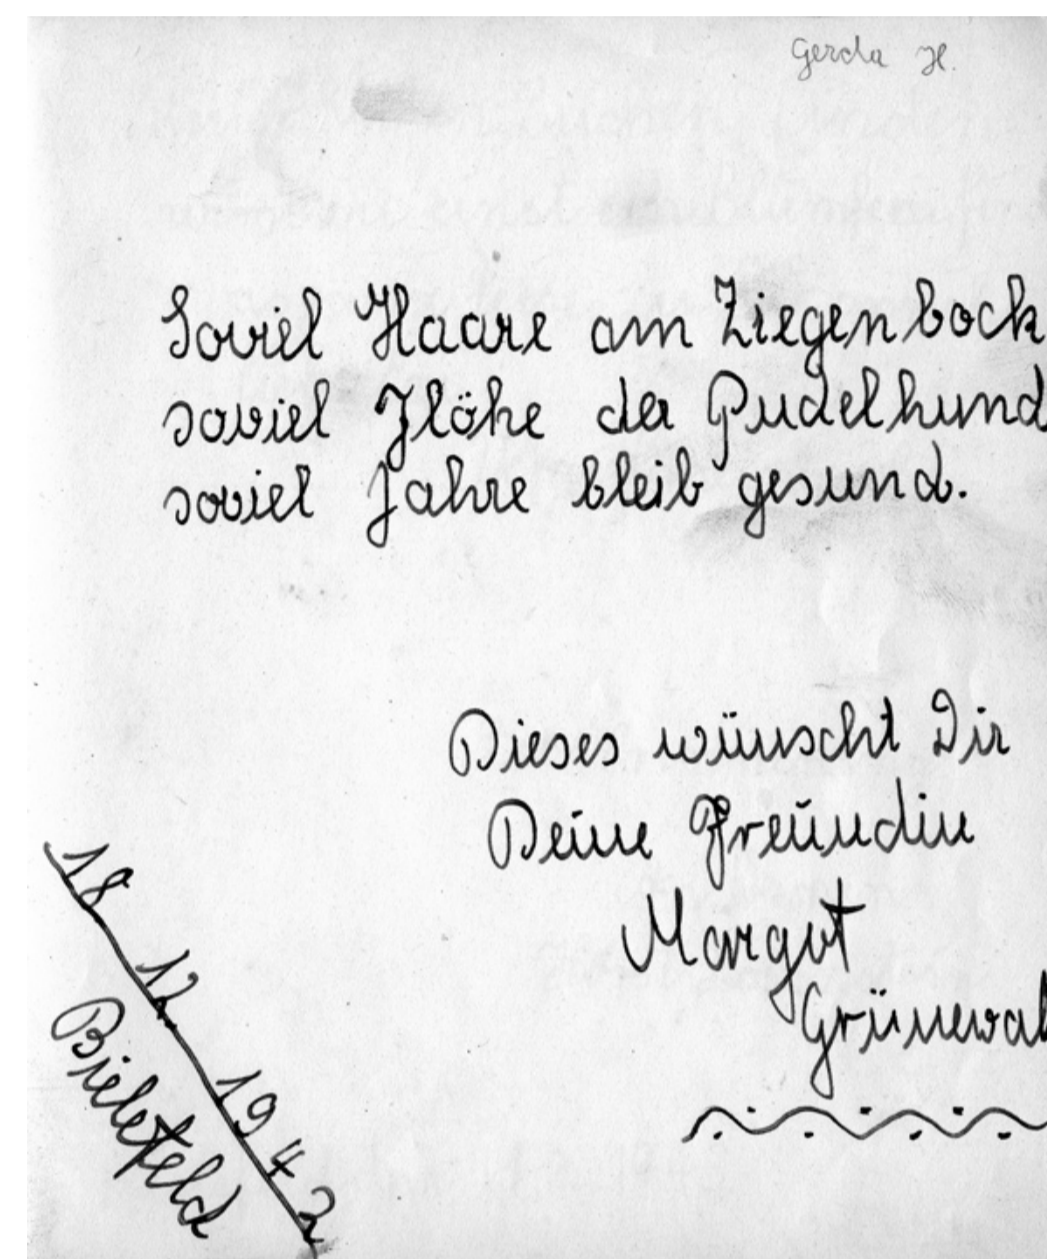 Gerda H.
Soviel Haare am Ziegenbock
soviel Flöhe der Pudelhund
soviel Jahre bleib gesund.
Dieses wünscht Dir
Deine Freundin
Margot
Grünewal
18 12 1942
Bielefeld